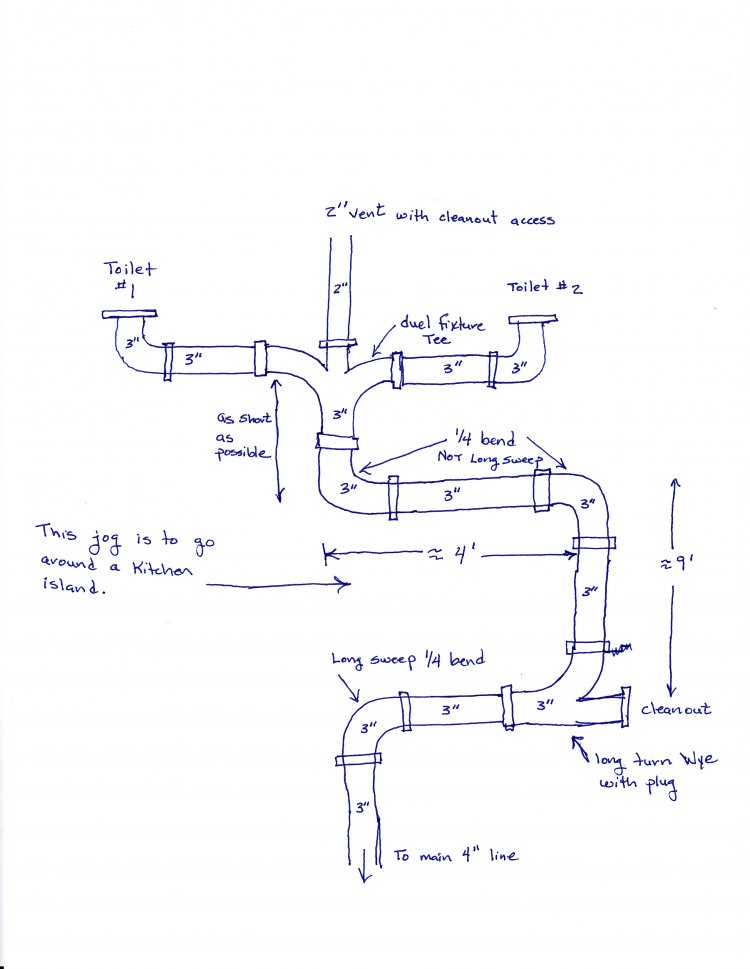 2" vent with cleanout access
Toilet
#1
2"
Toilet #2
duel fixture
Tee
3"
3"
3"
3"
3"
as short
as
possible
1/4 bend
Not Long sweep
3"
3"
3"
This jog is to go
around a Kitchen
island.
≈ 4'
≈ 9'
3"
Long sweep 1/4 bend
3"
3"
3"
cleanout
long turn Wye
with plug
3"
To main 4" line